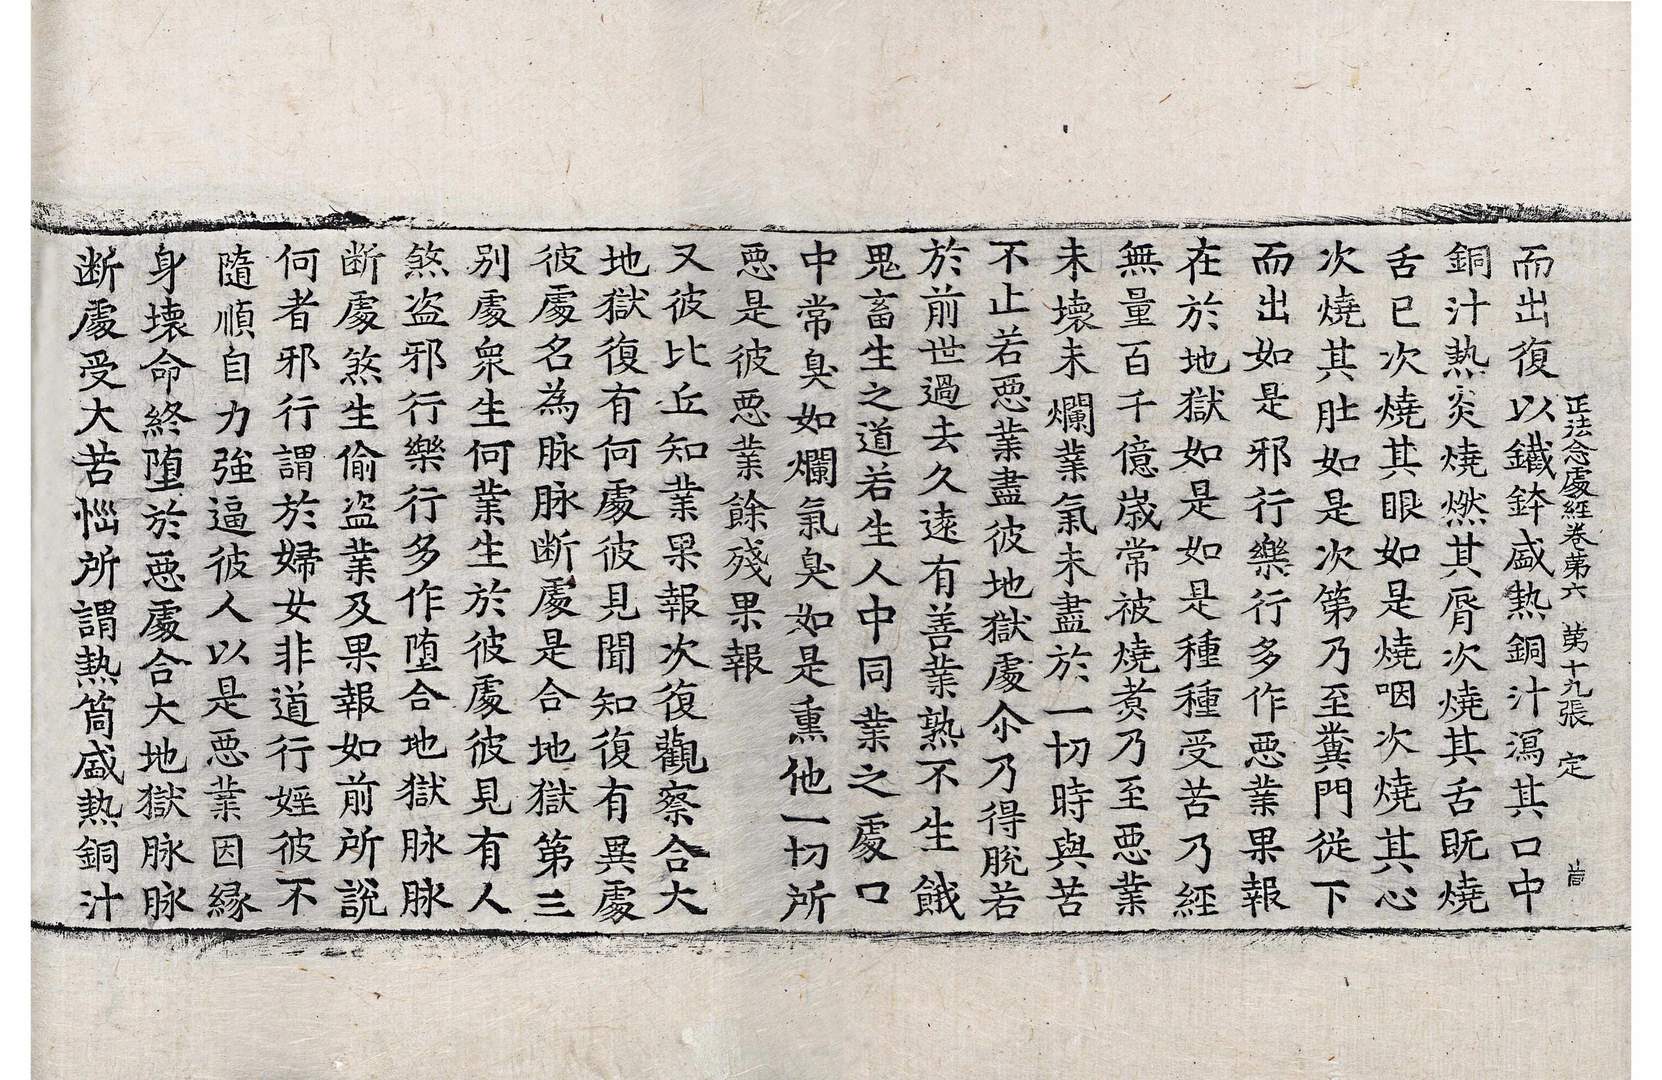 正法念處經卷第六 第十九張 定
而出復以鐵鉢盛熱銅汁瀉其口中
銅汁熱炎燒燃其脣次燒其舌既燒
舌已次燒其眼如是燒咽次燒其心
次燒其肚如是次第乃至糞門從下
而出如是邪行樂行多作惡業果報
在於地獄如是如是種種受苦乃經
無量百千億歲常被燒煮乃至惡業
未壞未爛業氣未盡於一切時與苦
不止若惡業盡彼地獄處尒乃得脫若
於前世過去久遠有善業熟不生餓
鬼畜生之道若生人中同業之處口
中常臭如爛氣臭如是熏他一切所
惡是彼惡業餘殘果報
又彼比丘知業果報次復觀察合大
地獄復有何處彼見聞知復有異處
彼處名為脉脉断處是合地獄第三
别處衆生何業生於彼處彼見有人
煞盗邪行樂行多作墮合地獄脉脉
断處煞生偷盗業及果報如前所說
何者邪行謂於婦女非道行婬彼不
隨順自力強逼彼人以是惡業因緣
身壞命終墮於惡處合大地獄脉脉
断處受大苦惱所謂熱筒盛熱銅汁